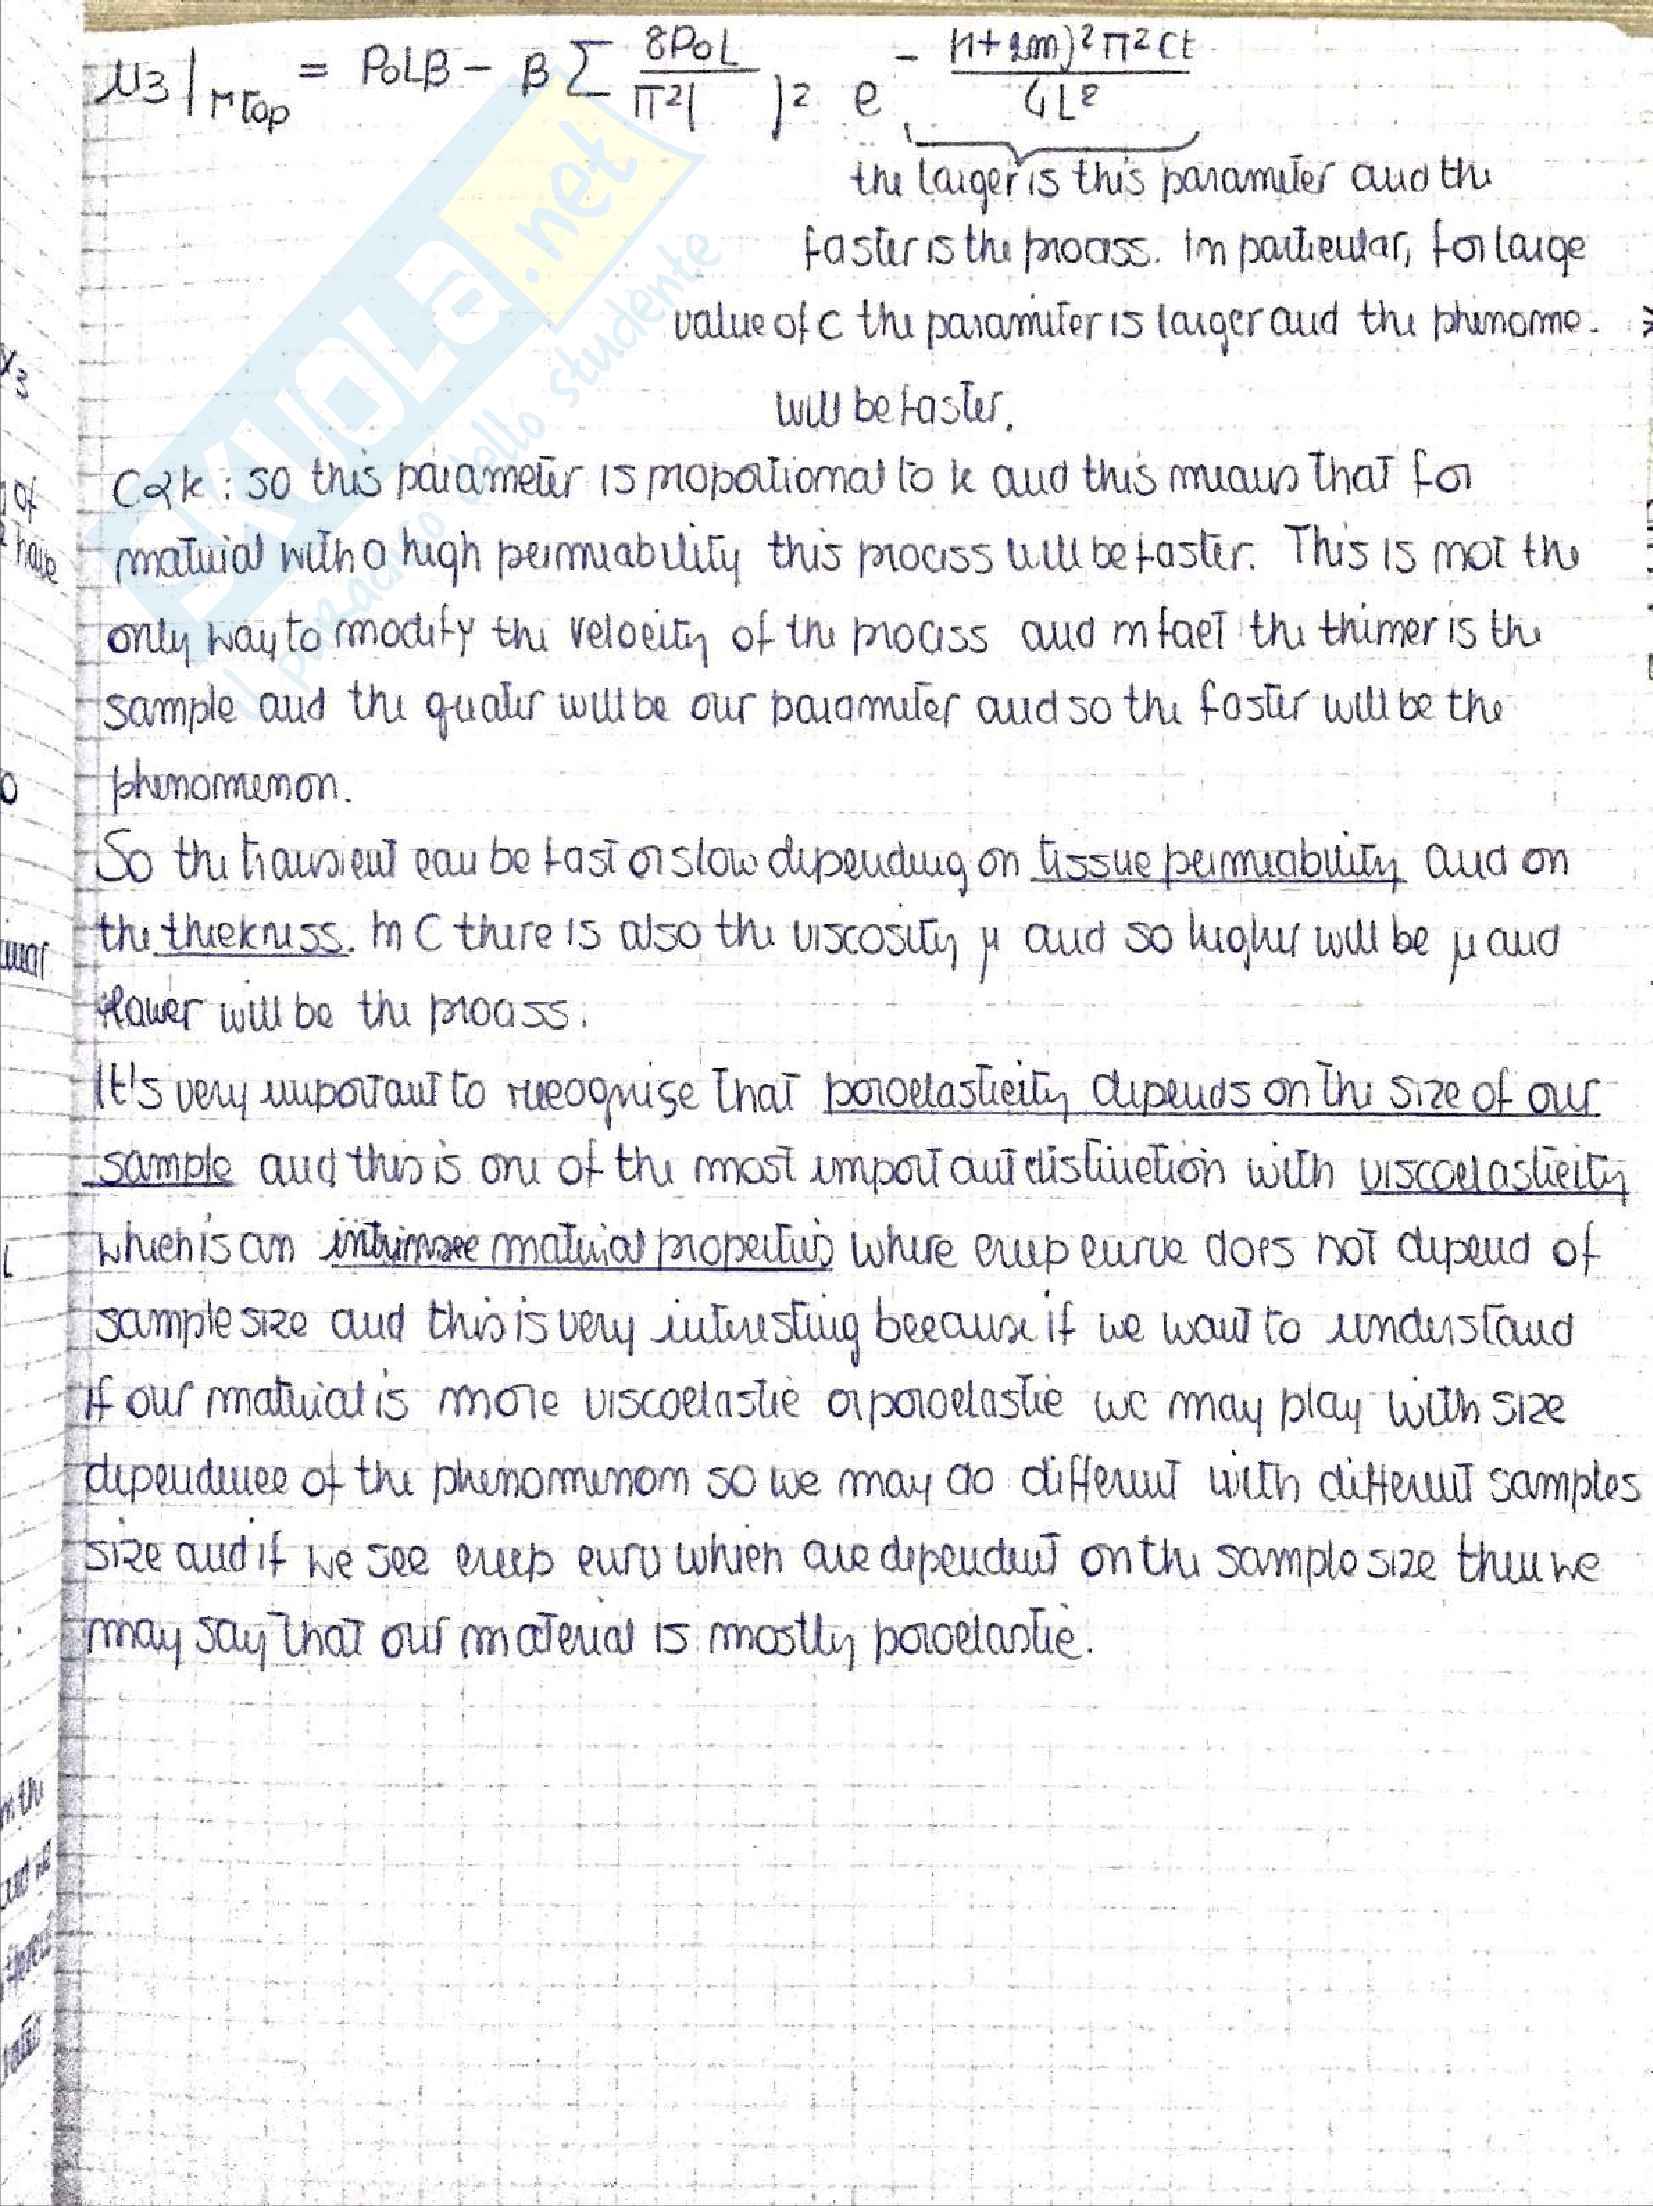 u3|top = P0Lβ - β Σ 8P0L / π²( )² e^ - (1+2m)²π²Ct / 4L²
the larger is this parameter and the
faster is the process. In particular, for large
value of c the parameter is larger and the phenome.
will be faster.
C α k : so this parameter is proportional to k and this means that for
material with a high permeability this process will be faster. This is not the
only way to modify the velocity of the process and in fact the thinner is the
sample and the greater will be our parameter and so the faster will be the
phenomenon.
So the transient can be fast or slow depending on tissue permeability and on
the thickness. In C there is also the viscosity μ and so higher will be μ and
slower will be the process.
It's very important to recognise that poroelasticity depends on the size of our
sample and this is one of the most important distinction with viscoelasticity
which is an intrinsec material properties where creep curve does not depend of
sample size and this is very interesting because if we want to understand
if our material is more viscoelastic or poroelastic we may play with size
dependence of the phenomenon so we may do different with different samples
size and if we see creep curv which are dependent on the sample size then we
may say that our material is mostly poroelastic.
x3
of
have
in the
SKUOLA.net
Il paradiso dello studente